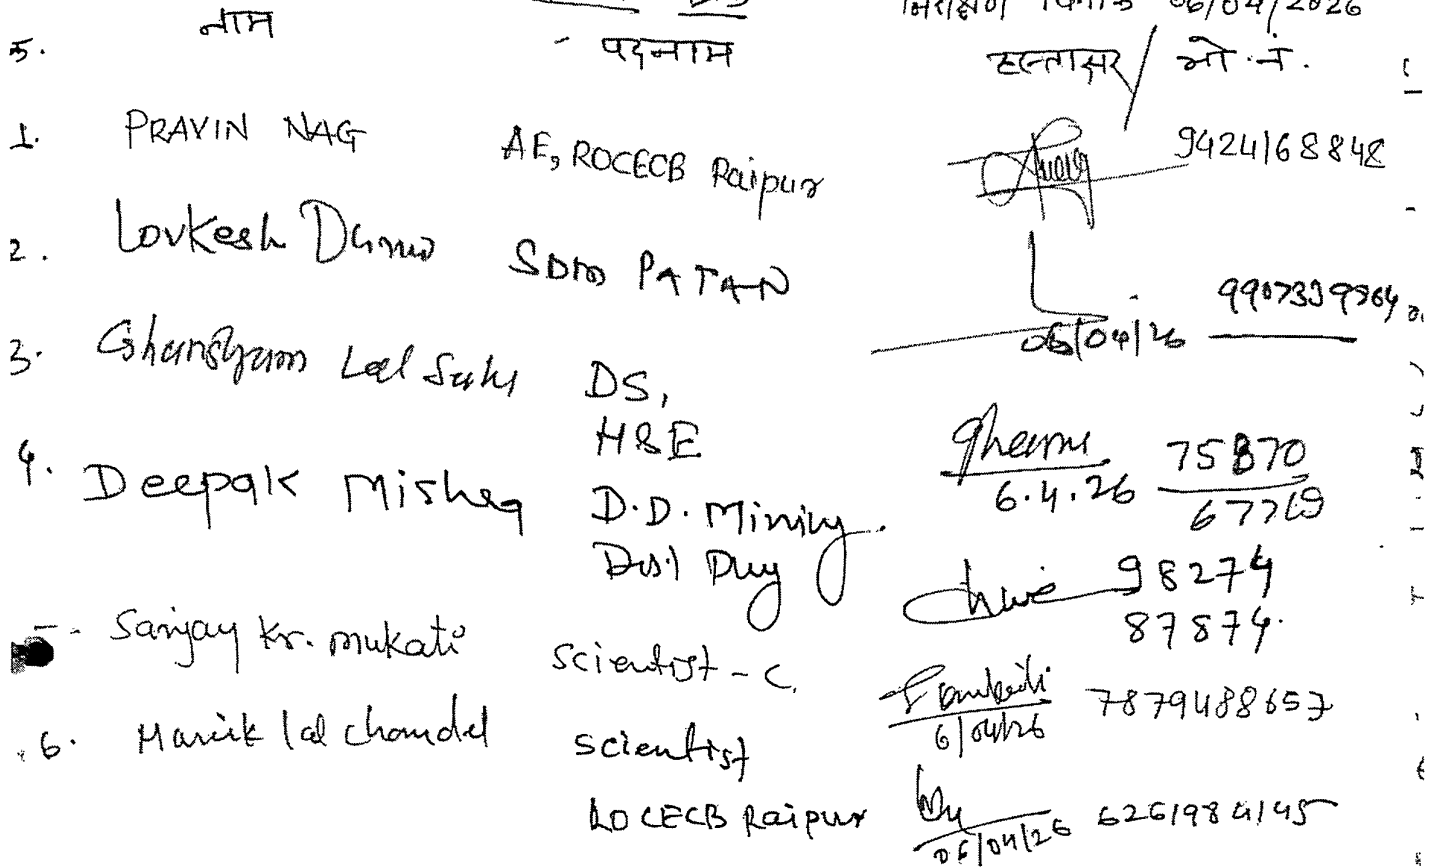 निरीक्षण दिनांक 06/04/2026
क्र. नाम पदनाम हस्ताक्षर / मो. नं.
1. PRAVIN NAG AE, ROCECB Raipur 9424168848
2. Lovkesh SDM PATAN 06/04/26
3. Ghanshyam Lal Sahu DS, H&E 6.4.26 75870 67769
4. Deepak Mishra D.D. Mining Dist Durg 98274 87874.
5. Sanjay Kr. Mukati Scientist - C. 6/04/26 7879488657
6. Manik lal chandel Scientist ROCECB Raipur 06/04/26 6261984145